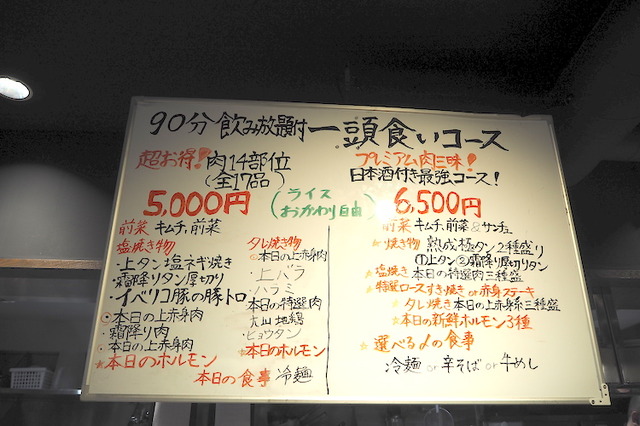 90分 飲み放題付 一頭食いコース
超お得! 肉14部位
(全17品)
5,000円
(ライス
おかわり自由)
プレミアム肉三昧!
日本酒付き最強コース!
6,500円
前菜 キムチ,前菜
塩焼き物
・上タン塩ネギ焼き
・霜降りタン厚切り
・イベリコ豚の豚トロ
本日の上赤身肉
・霜降り肉
・本日の上赤身肉
☆本日のホルモン
タレ焼き物
本日の上赤身肉
上バラ
ハラミ
本日の特選肉
大山地鶏
ヒョウタン
☆本日のホルモン
本日の食事 冷麺
前菜 キムチ,前菜&サンチュ
焼き物 熟成極タン2種盛り
①上タン②霜降り厚切りタン
☆塩焼き 本日の特選肉三種盛
☆特選ロースすき焼き or 赤身ステーキ
☆タレ焼き 本日の上赤身系三種盛
☆本日の新鮮ホルモン3種
☆選べる〆の食事
冷麺 or 辛そば or 牛めし